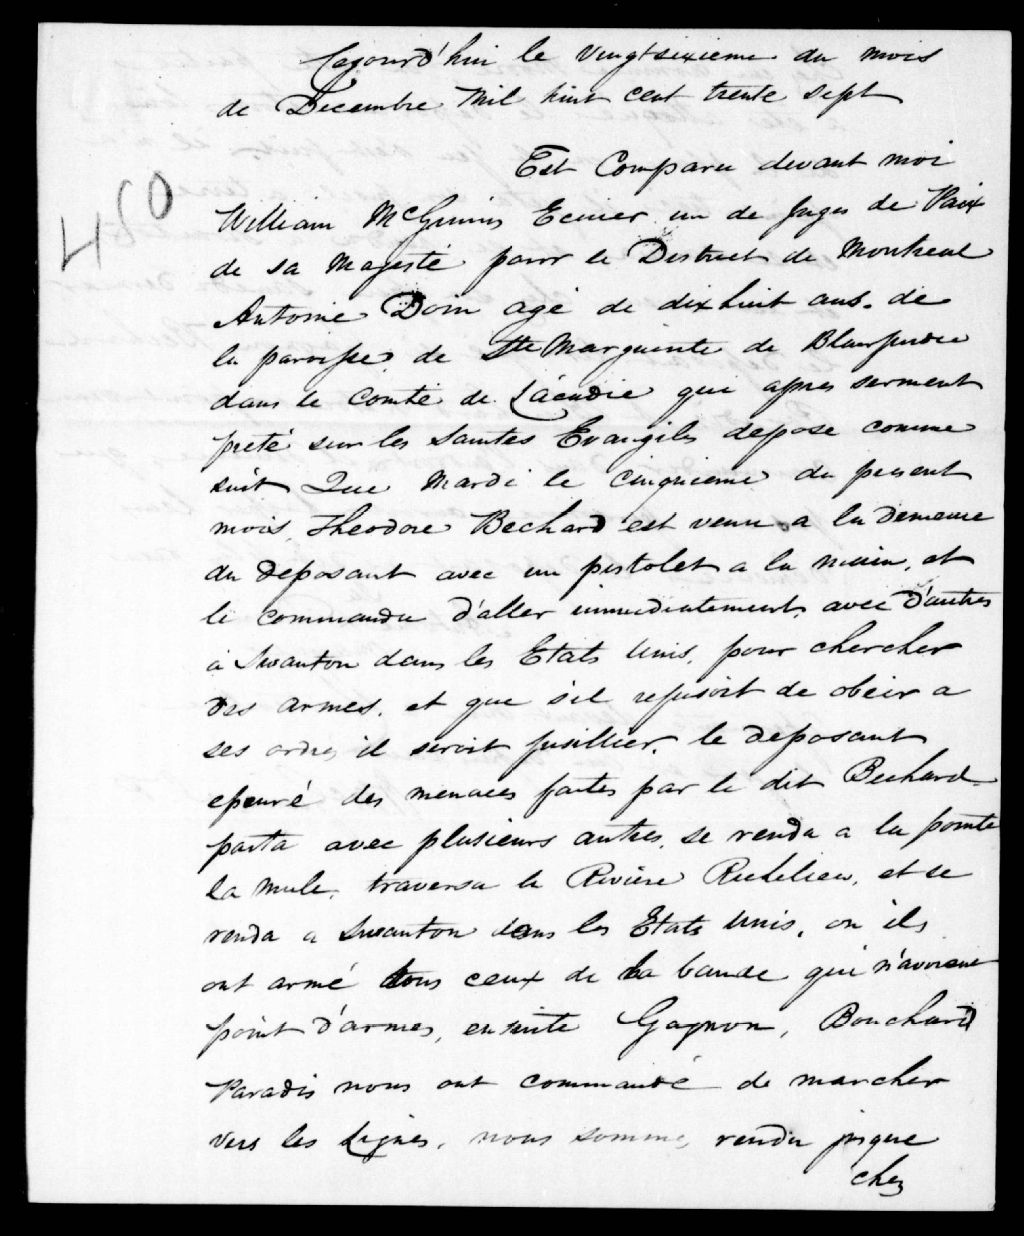 Cejourd'hui le vingtsixieme du mois
de Decembre Mil huit cent trente sept
Est Comparu devant moi
450
William McGinnis Ecuier un de Juges de Paix
de sa Majesté pour le District de Montreal
Antoine Doin agé de dix huit ans. de
la paroisse de Ste Marguerite de Blairfindie
dans le Comté de Lácadie qui apres serment
preté sur les Saintes Evangiles depose comme
suit Que Mardi le Cinquieme du present
mois, Theodore Bechard est venu a la demeure
du deposant avec un pistolet a la main, et
le commanda d'aller immediatement, avec D'autres
à Swanton dans les Etats Unis, pour chercher
des armes. et que s'il refusoit de obéir a
ses ordres il seroit fusillier. le deposant
epeuré des menaces faites par le dit Bechard
parta avec plusieurs autres, se renda a la pointe
la Mule, traversa la Riviere Richelieu, et se
renda a Swanton dans les Etats Unis, ou ils
ont armé tous ceux de la bande qui n'avoient
point d'armes, ensuite Gagnon, Bouchard
Paradis nous ont commandé de marcher
vers les Lignes, nous somme, rendu jusque
chez